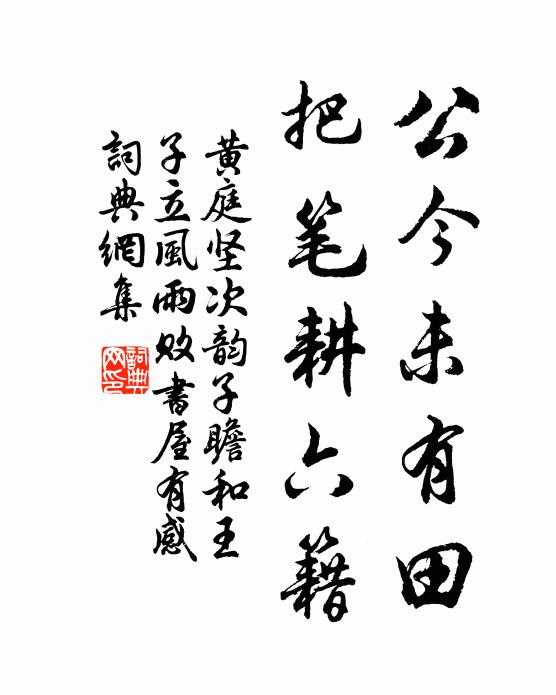 公今未有田
把笔耕六籍
黄庭坚次韵子瞻和王
子立風雨败書屋有感
詞典網集
詞典网印